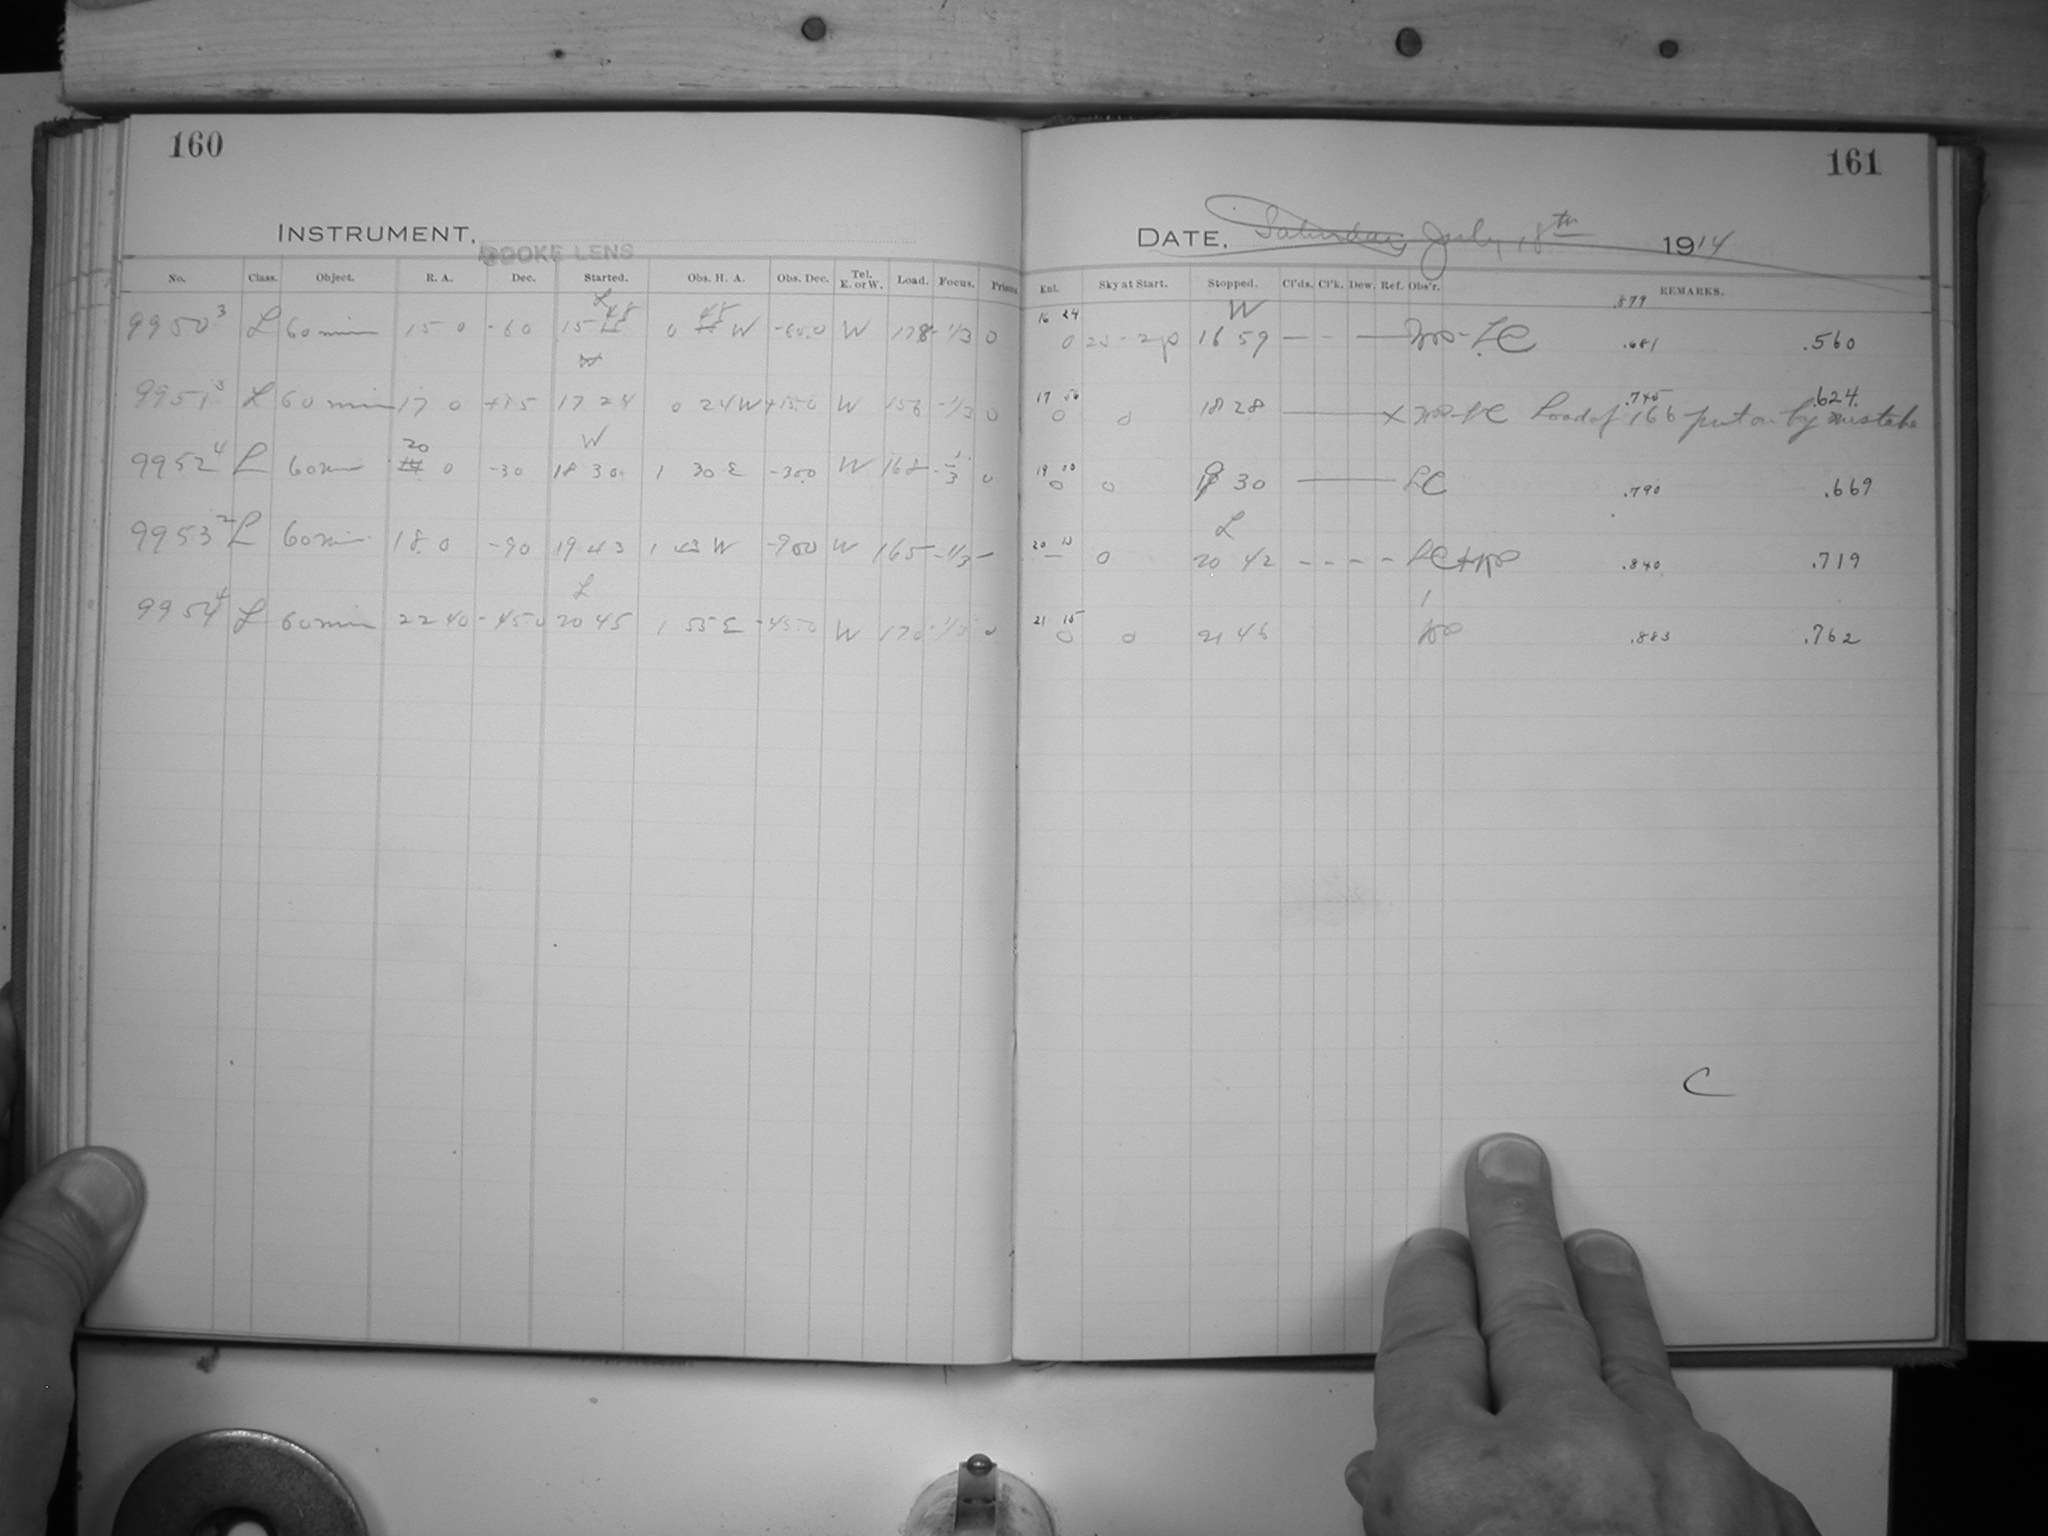 160
INSTRUMENT, COOKE LENS
No. Class. Object. R. A. Dec. Started. Obs. H. A. Obs. Dec. Tel. E. or W. Load. Focus. Prisms
9950 3 L 60 min 15 0 -60 15 48 0 48 W -60.0 W 178 -1/3 0
9951 3 L 60 min 17 0 +15 17 24 0 24 W +15.0 W 156 -1/3 0
9952 4 L 60 min 20 0 -30 18 30 1 30 E -30.0 W 162 -1/3 0
9953 2 L 60 min 18 0 -90 19 43 1 43 W -90.0 W 165 -1/3 -
9954 4 L 60 min 22 40 -45.0 20 45 1 55 E -45.0 W 170 -1/3 0
161
DATE, Saturday July 18th 1914
Ent. Sky at Start. Stopped. Cl'ds. Cl'k. Dew. Ref. Obs'r. REMARKS.
.879
16 24 0 W 16 59 .681 .560
17 0 0 18 28 x .745 .624 Load of 166 put on by mistake
19 10 0 0 19 30 LC .790 .669
20 - 0 L 20 42 - - - - .840 .719
21 15 0 0 21 46 .883 .762
C